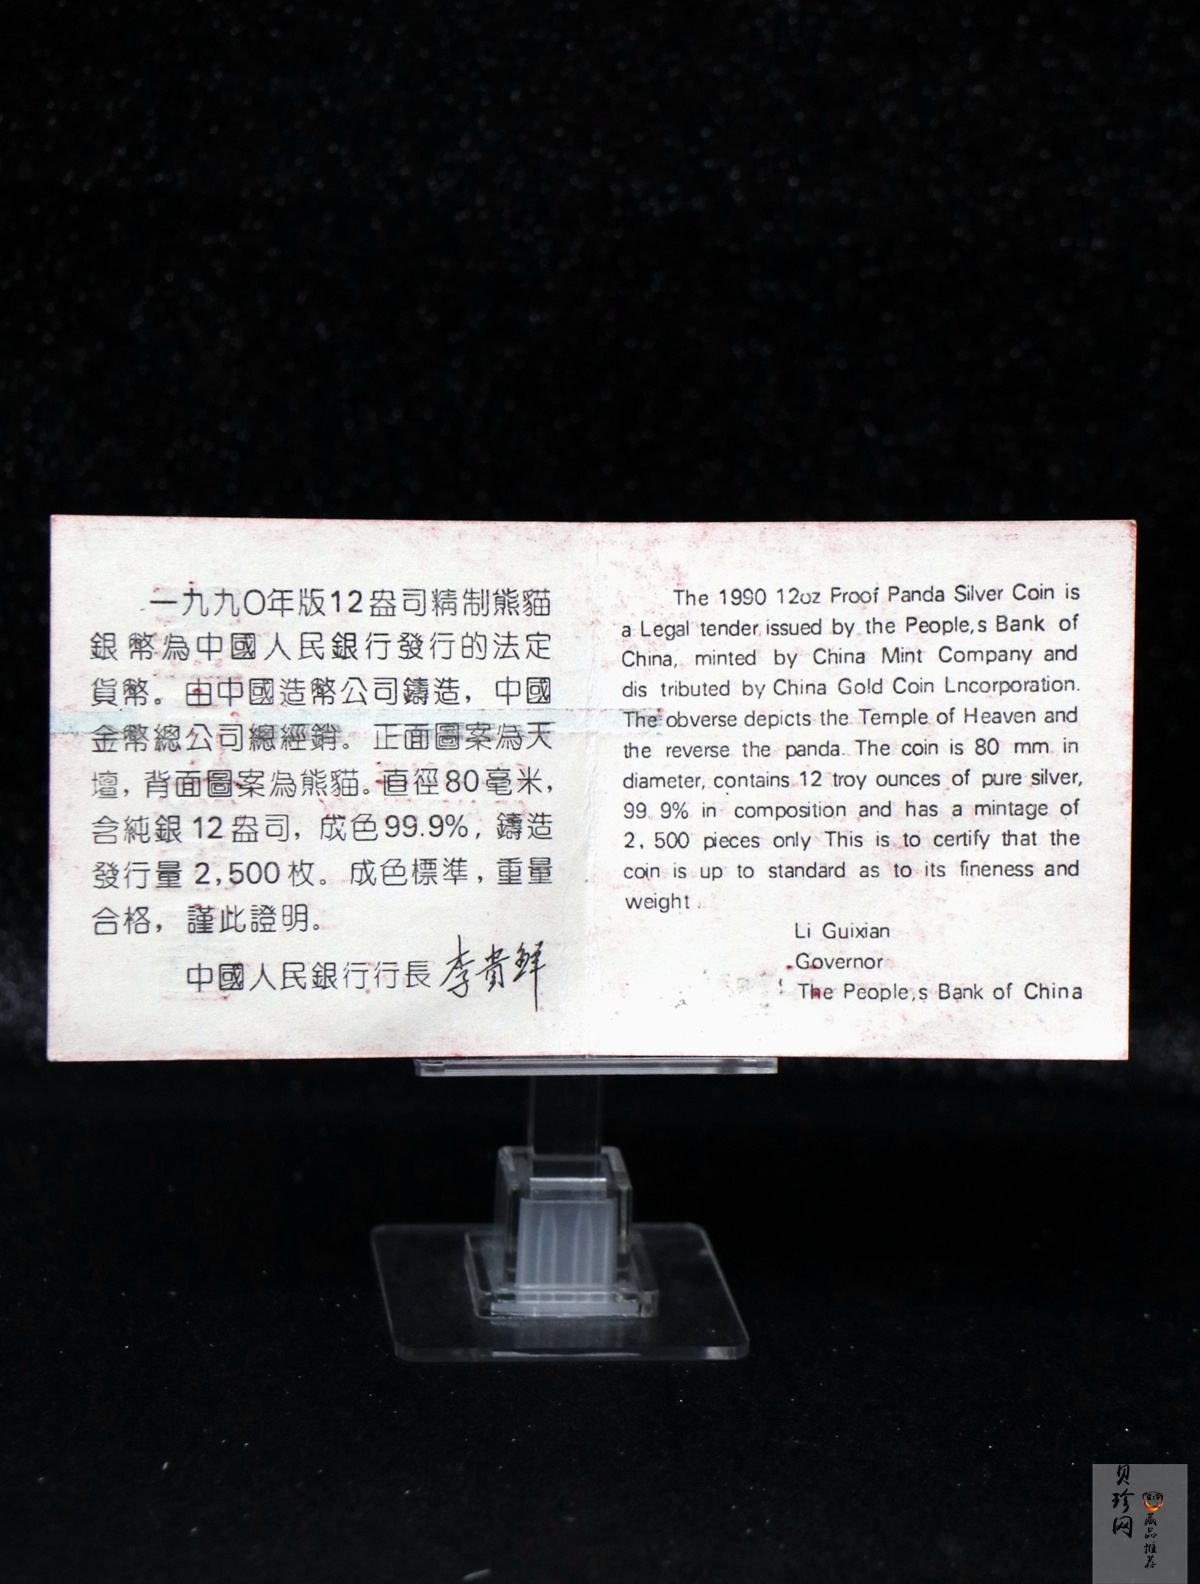 一九九〇年版12盎司精制熊貓
銀幣為中國人民銀行發行的法定
貨幣。由中國造幣公司鑄造，中國
金幣總公司總經銷。正面圖案為天
壇，背面圖案為熊貓。直徑80毫米，
含純銀12盎司，成色99.9%，鑄造
發行量2,500枚。成色標準，重量
合格，謹此證明。
中國人民銀行行長 李貴鮮
The 1990 12oz Froof Panda Silver Coin is
a Legal tender issued by the People,s Bank of
China, minted by China Mint Company and
dis tributed by China Gold Coin Lncorporation.
The obverse depicts the Temple of Heaven and
the reverse the panda. The coin is 80 mm in
diameter, contains 12 troy ounces of pure silver,
99 9% in composition and has a mintage of
2, 500 pieces only This is to certify that the
coin is up to standard as to its fineness and
weight .
Li Guixian
Governor
The People,s Bank of China
贝珍网
藏品推荐